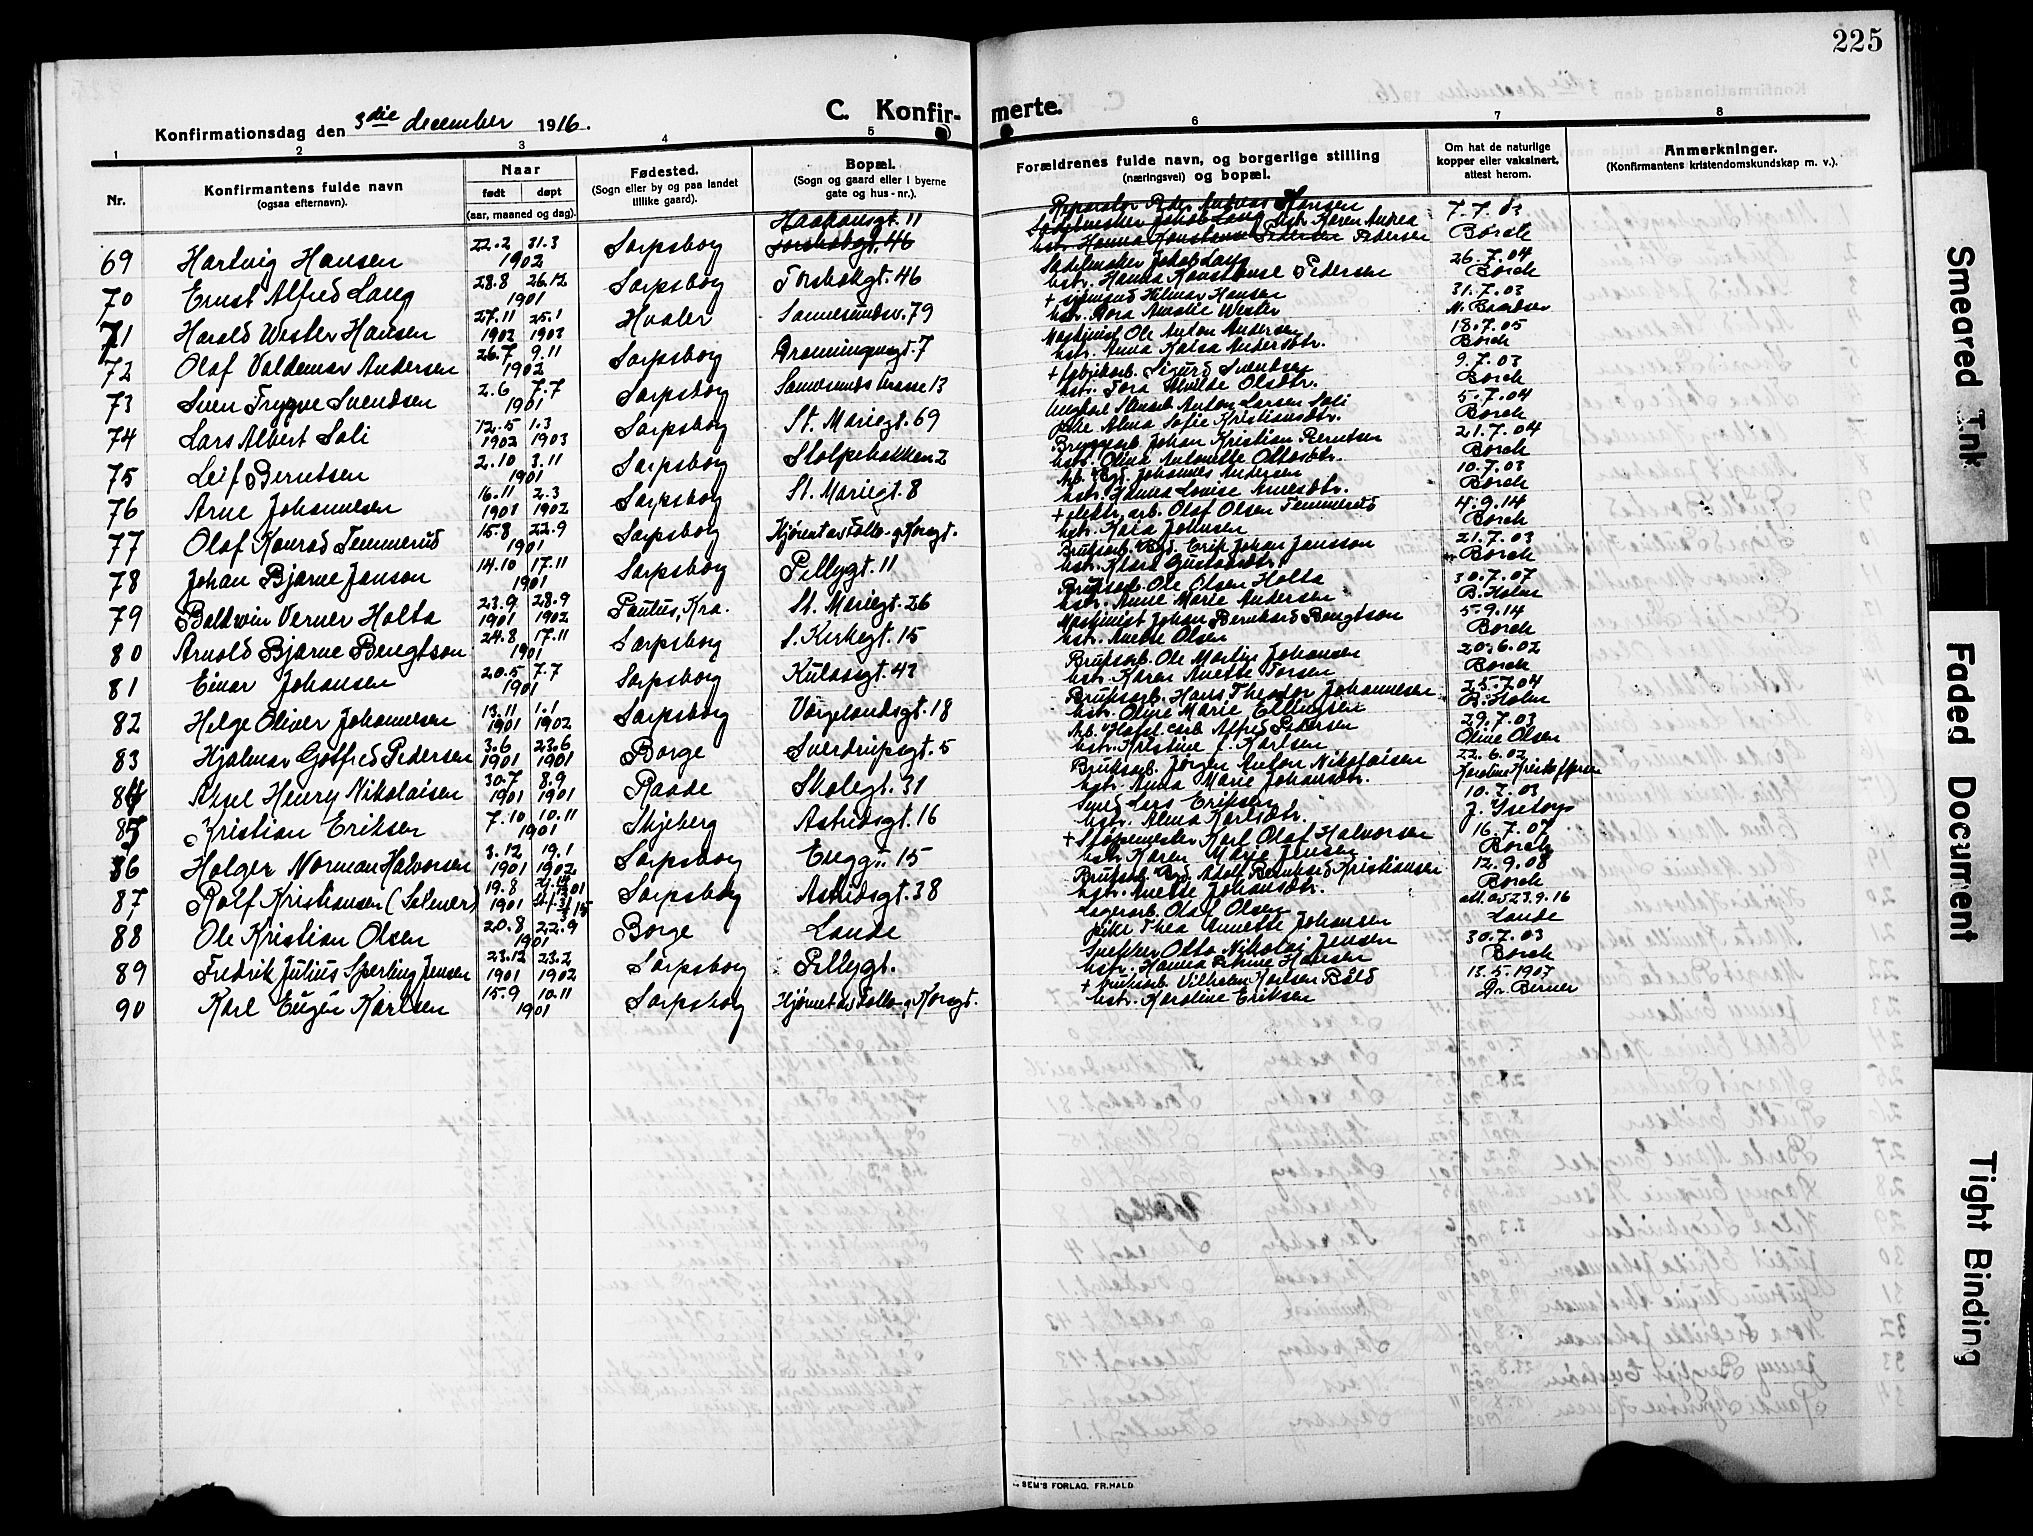 225
C. Konfirmerte.
Konfirmationsdag den 3die december 1916.
1 2 3 4 5 6 7 8
Nr.
Konfirmantens fulde navn
(ogsaa efternavn).
Naar
født døpt
(aar, maaned og dag).
Fødested.
(Sogn eller by og paa landet
tillike gaard).
Bopæl.
(Sogn og gaard eller i byerne
gate og hus-nr.).
Forældrenes fulde navn, og borgerlige stilling
(næringsvei) og bopæl.
Om hat de naturlige
kopper eller vaksinert,
attest herom.
Anmerkninger.
(Konfirmantens kristendomskundskap m. v.).
69 Hartvig Hansen 22.2 31.3 1902 Sarpsborg Haakonsgt. 11 Reparatør Peder Andreas Hansen hstr. Karen Andrea Pedersen 7.7.03 Borch
70 Ernst Alfred Lang 28.8 26.12 1901 Sarpsborg Torsbekgt. 46 Sadelmaker Jakob Lang hstr. Hanna Konstanse Pedersen 26.7.04 Borch
71 Harald Wester Hansen 27.11 1902 25.1 1903 Hvaler Sannesundsv. 79 + sjømand Hilmar Hansen hstr. Dora Amalie Wester 31.7.03
72 Olaf Valdemar Andersen 26.7 9.11 1902 Sarpsborg Dronningensgt. 7 Maskinist Ole Anton Andersen hstr. Anna Kaisa Andersdtr. 18.7.05 Borch
73 Sven Trygve Svendsen 2.6 7.7 1901 Sarpsborg 13 + fabrikarb. Sigurd Svendsen hstr. Tora Olsdtr. 9.7.03 Borch
74 Lars Albert Soli 12.5 1902 1.3 1903 Sarpsborg St. Mariegt. 69 Ungkarl Anton Larsen Soli pike Alma Sofie Kristiansdtr. 5.7.04 Borch
75 Leif Berntsen 2.10 3.11 1901 Sarpsborg Stolpebakken 2 Bryggearb. Johan Kristian Berntsen hstr. Olina Antonette Ottosdtr. 21.7.04 Borch
76 Arne Johannesen 16.11 1901 2.3 1902 Sarpsborg St. Mariegt. 8 Arb. Johannes Andersen hstr. Hanna Louise 10.7.03 Borch
77 Olaf Konrad Temmerud 15.8 22.9 1901 Sarpsborg Hjørnet av Tollb- og Korsgt. + elektr. arb. Olaf Olsen Temmerud hstr. Kaia Johnsen 4.9.14 Borch
78 Johan Bjarne Janson 14.10 17.11 1901 Sarpsborg Pellygt. 11 Bruksarb. Erik Johan Jansson hstr. Klara Gustavsdtr. 21.7.03 Borch
79 Baldwin Verner Holta 23.9 1901 28.9 1902 Paulus, Kra. St. Mariegt. 26 Bruksarb. Ole Olsen Holta hstr. Anne Marie Andersen 30.7.07 B. Holm
80 Arnold Bjarne Bengtson 24.8 17.11 1901 Sarpsborg S. Kirkegt. 15 Maskinist Johan Bernhard Bengtson hstr. Anette Olsen 5.9.14 Borch
81 Einar Johansen 20.5 7.7 1901 Sarpsborg Kulaasgt. 43 Bruksarb. Ole Martin Johansen hstr. Karen Anette Torsen 20.6.02 Borch
82 Helge Oliver Johannesen 13.11 1901 1.1 1902 Sarpsborg Vergelandsgt. 18 Bruksarb. Hans Theodor Johannesen hstr. Marie 25.7.04 B. Holm
83 Hjalmar Gotfred Pedersen 3.6 1901 23.6 1901 Borge Sverdrupsgt. 5 Alfred Pedersen hstr. Kristine J. Karlsen 29.7.03 Oline Olsen
84 Aksel Henry Nikolaisen 30.7 1901 8.9 1901 Raade Skolegt. 31 Bruksarb. Jørgen Anton Nikolaisen hstr. Anna Marie Johansdtr. 22.6.02 Karoline
85 Kristian Eriksen 7.10 10.11 1901 Skjeberg Astridsgt. 16 Smed Lars Eriksen hstr. Alma Karlsdtr. 10.7.03
86 Holger Norman Halvorsen 3.12 1901 19.1 1902 Sarpsborg Enggt. 15 + Støpemester Karl Olaf Halvorsen hstr. Karen Marie Jensen 16.7.07 Borch
87 Rolf Kristiansen (Solmer) 19.8 1901 Sarpsborg Astridsgt. 38 Bruksarb. Adolf Bernhard Kristiansen hstr. Anette Johansdtr. 12.9.08 Borch
88 Ole Kristian Olsen 20.8 22.9 1901 Borge Lande Lagerarb. Olaf Olsen pike Thea Annette Johansen att. av 23.9.16 Lande
89 Fredrik Julius Sperling Jensen 23.12 1901 23.2 1902 Sarpsborg Pellygt. Snekker Otto Nikolai Jensen hstr. Hanna Hansen 30.7.03 Borch
90 Karl Eugen Karlsen 15.9 10.11 1901 Sarpsborg Hjørnet av Tollb- og Korsgt. + bruksarb. Vilhelm Karlsen hstr. Karoline Eriksen 13.5.1907 Dr. Berner
SEM'S FORLAG, FR.HALD.
Smeared Ink
Faded Document
Tight Binding